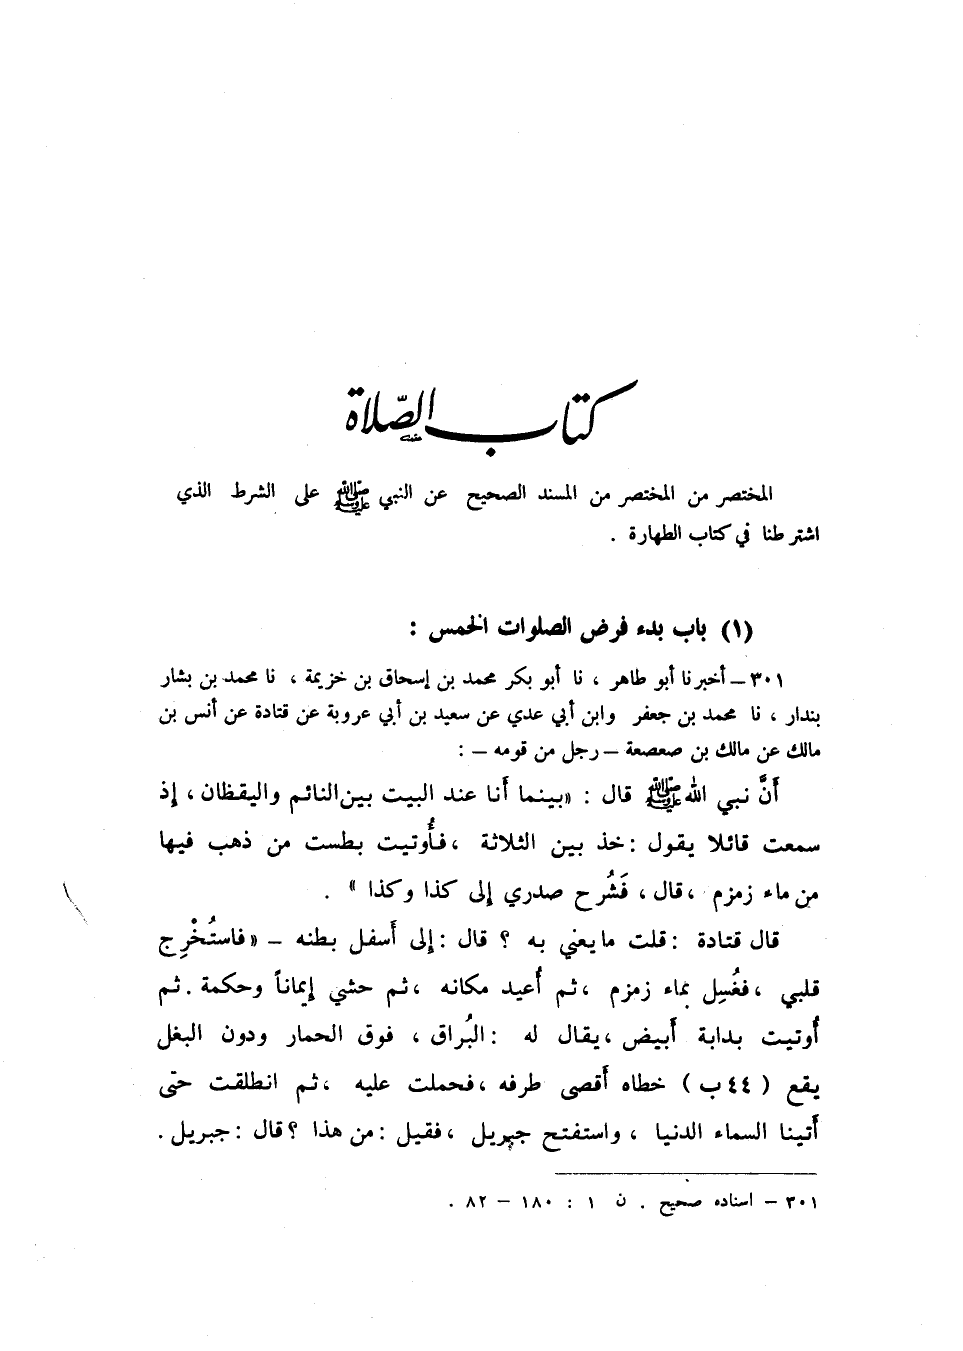 كتاب الصّلاة
المختصر من المختصر من المسند الصحيح عن النبي ﷺ على الشرط الذي
اشترطنا في كتاب الطهارة .
(١) باب بدء فرض الصلوات الخمس :
٣٠١ – أخبرنا أبو طاهر ، نا أبو بكر محمد بن إسحاق بن خزيمة ، نا محمد بن بشار
بندار ، نا محمد بن جعفر وابن أبي عدي عن سعيد بن أبي عروبة عن قتادة عن أنس بن
مالك عن مالك بن صعصعة – رجل من قومه – :
أَنَّ نبي الله ﷺ قال : «بينما أنا عند البيت بين النائم واليقظان ، إذ
سمعت قائلا يقول : خذ بين الثلاثة ، فأُوتيت بطست من ذهب فيها
من ماء زمزم ، قال ، فَشُرح صدري إلى كذا وكذا » .
قال قتادة : قلت ما يعني به ؟ قال : إلى أَسفل بطنه – «فاستُخْرِج
قلبي ، فغُسِل بماء زمزم ، ثم أُعيد مكانه ، ثم حشي إيماناً وحكمة . ثم
أُوتيت بدابة أَبيض ، يقال له : البُراق ، فوق الحمار ودون البغل
يقع ( ٤٤ ب ) خطاه أَقصى طرفه ، فحملت عليه ، ثم انطلقت حتى
أَتينا السماء الدنيا ، واستفتح جبريل ، فقيل : من هذا ؟ قال : جبريل .
٣٠١ – اسناده صحيح . ن ١ : ١٨٠ – ٨٢ .